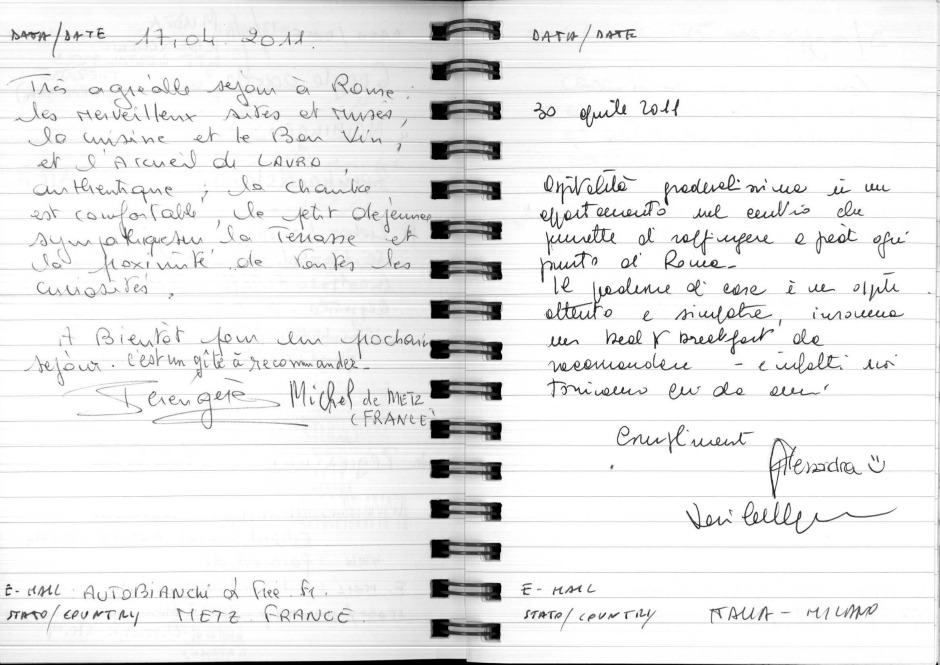 DATA/DATE 17.04 2011.
Très agréable sejour à Rome:
les merveilleux sites et musés,
la cuisine et le Bon Vin,
et l'Accueil de LAURO,
authentique; la chambre
est comfortable, le petit dejeuner
sympathique sur la Terrasse et
la proximité de toutes les
curiosités.
A Bientôt pour un prochain
sejour. C'est un gîte à recommander.
Bérengère Michel de METZ
(FRANCE)
E-MAIL AUTOBIANCHI @ free.fr.
STATO/COUNTRY METZ FRANCE.
DATA/DATE
30 aprile 2011
Ospitalità gradevolissima in un
appartamento nel centro che
permette di raggiungere a piedi ogni
punto di Roma.
Il padrone di casa è un ospite
attento e simpatico, insomma
un bed & breakfast da
raccomandare - e infatti noi
torniamo qui da anni!
Complimenti
Alessandra
E-MAIL
STATO/COUNTRY ITALIA - MILANO